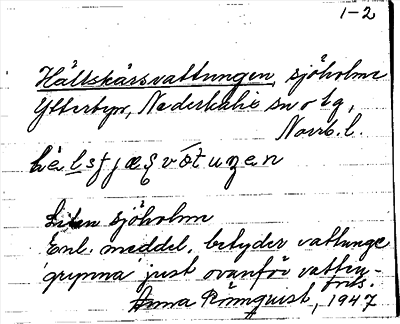 1-2
Hältskärsvattungen, sjöholme
Ytterbyn, Nederkalix sn o tg,
Norrb. l.
Liten sjöholm
Enl. meddel. betyder vattunge
'grynna just ovanför vatten-
Anna Rönnquist, 1947